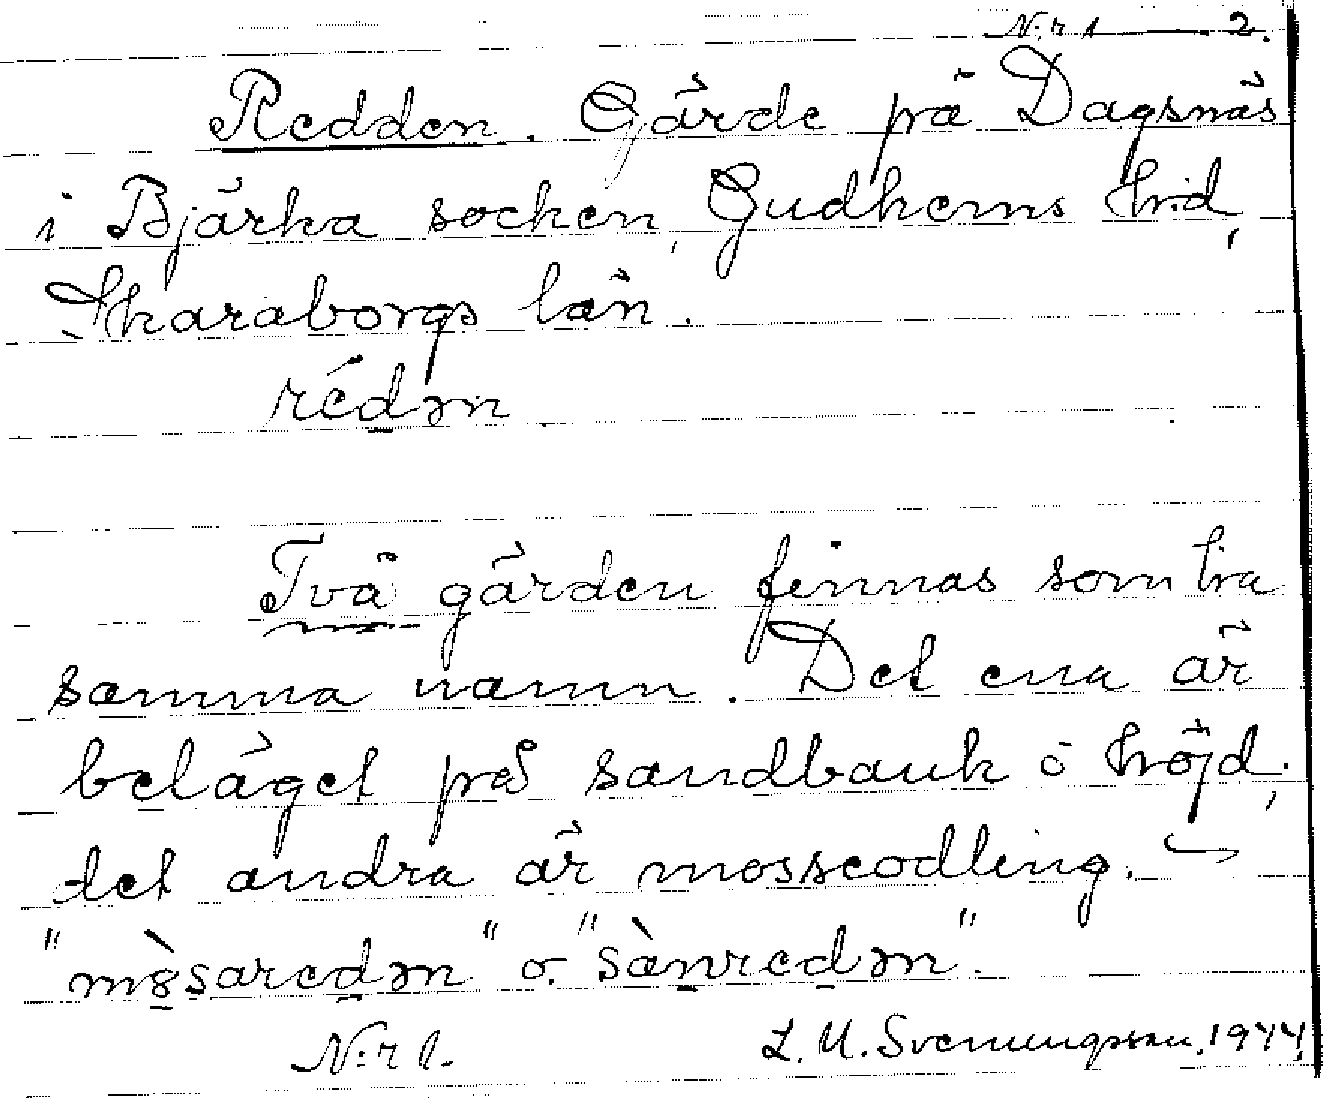 N:r 1 2.
Redden. Gärde på Dagsnäs
i Bjärka socken, Gudhems h:d,
Skaraborgs län.
rédən
Två gärden finnas som ha
samma namn. Det ena är
beläget på sandbank o höjd,
det andra är mosseodling. –
"mòsaredən" o. "sànredən".
N:r 1. L. M. Svenungsson, 1944.